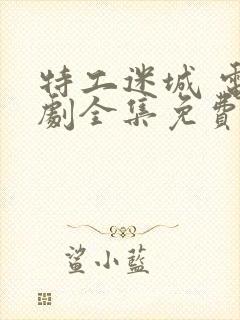 特工迷城 電
劇全集免費
鯊小藍